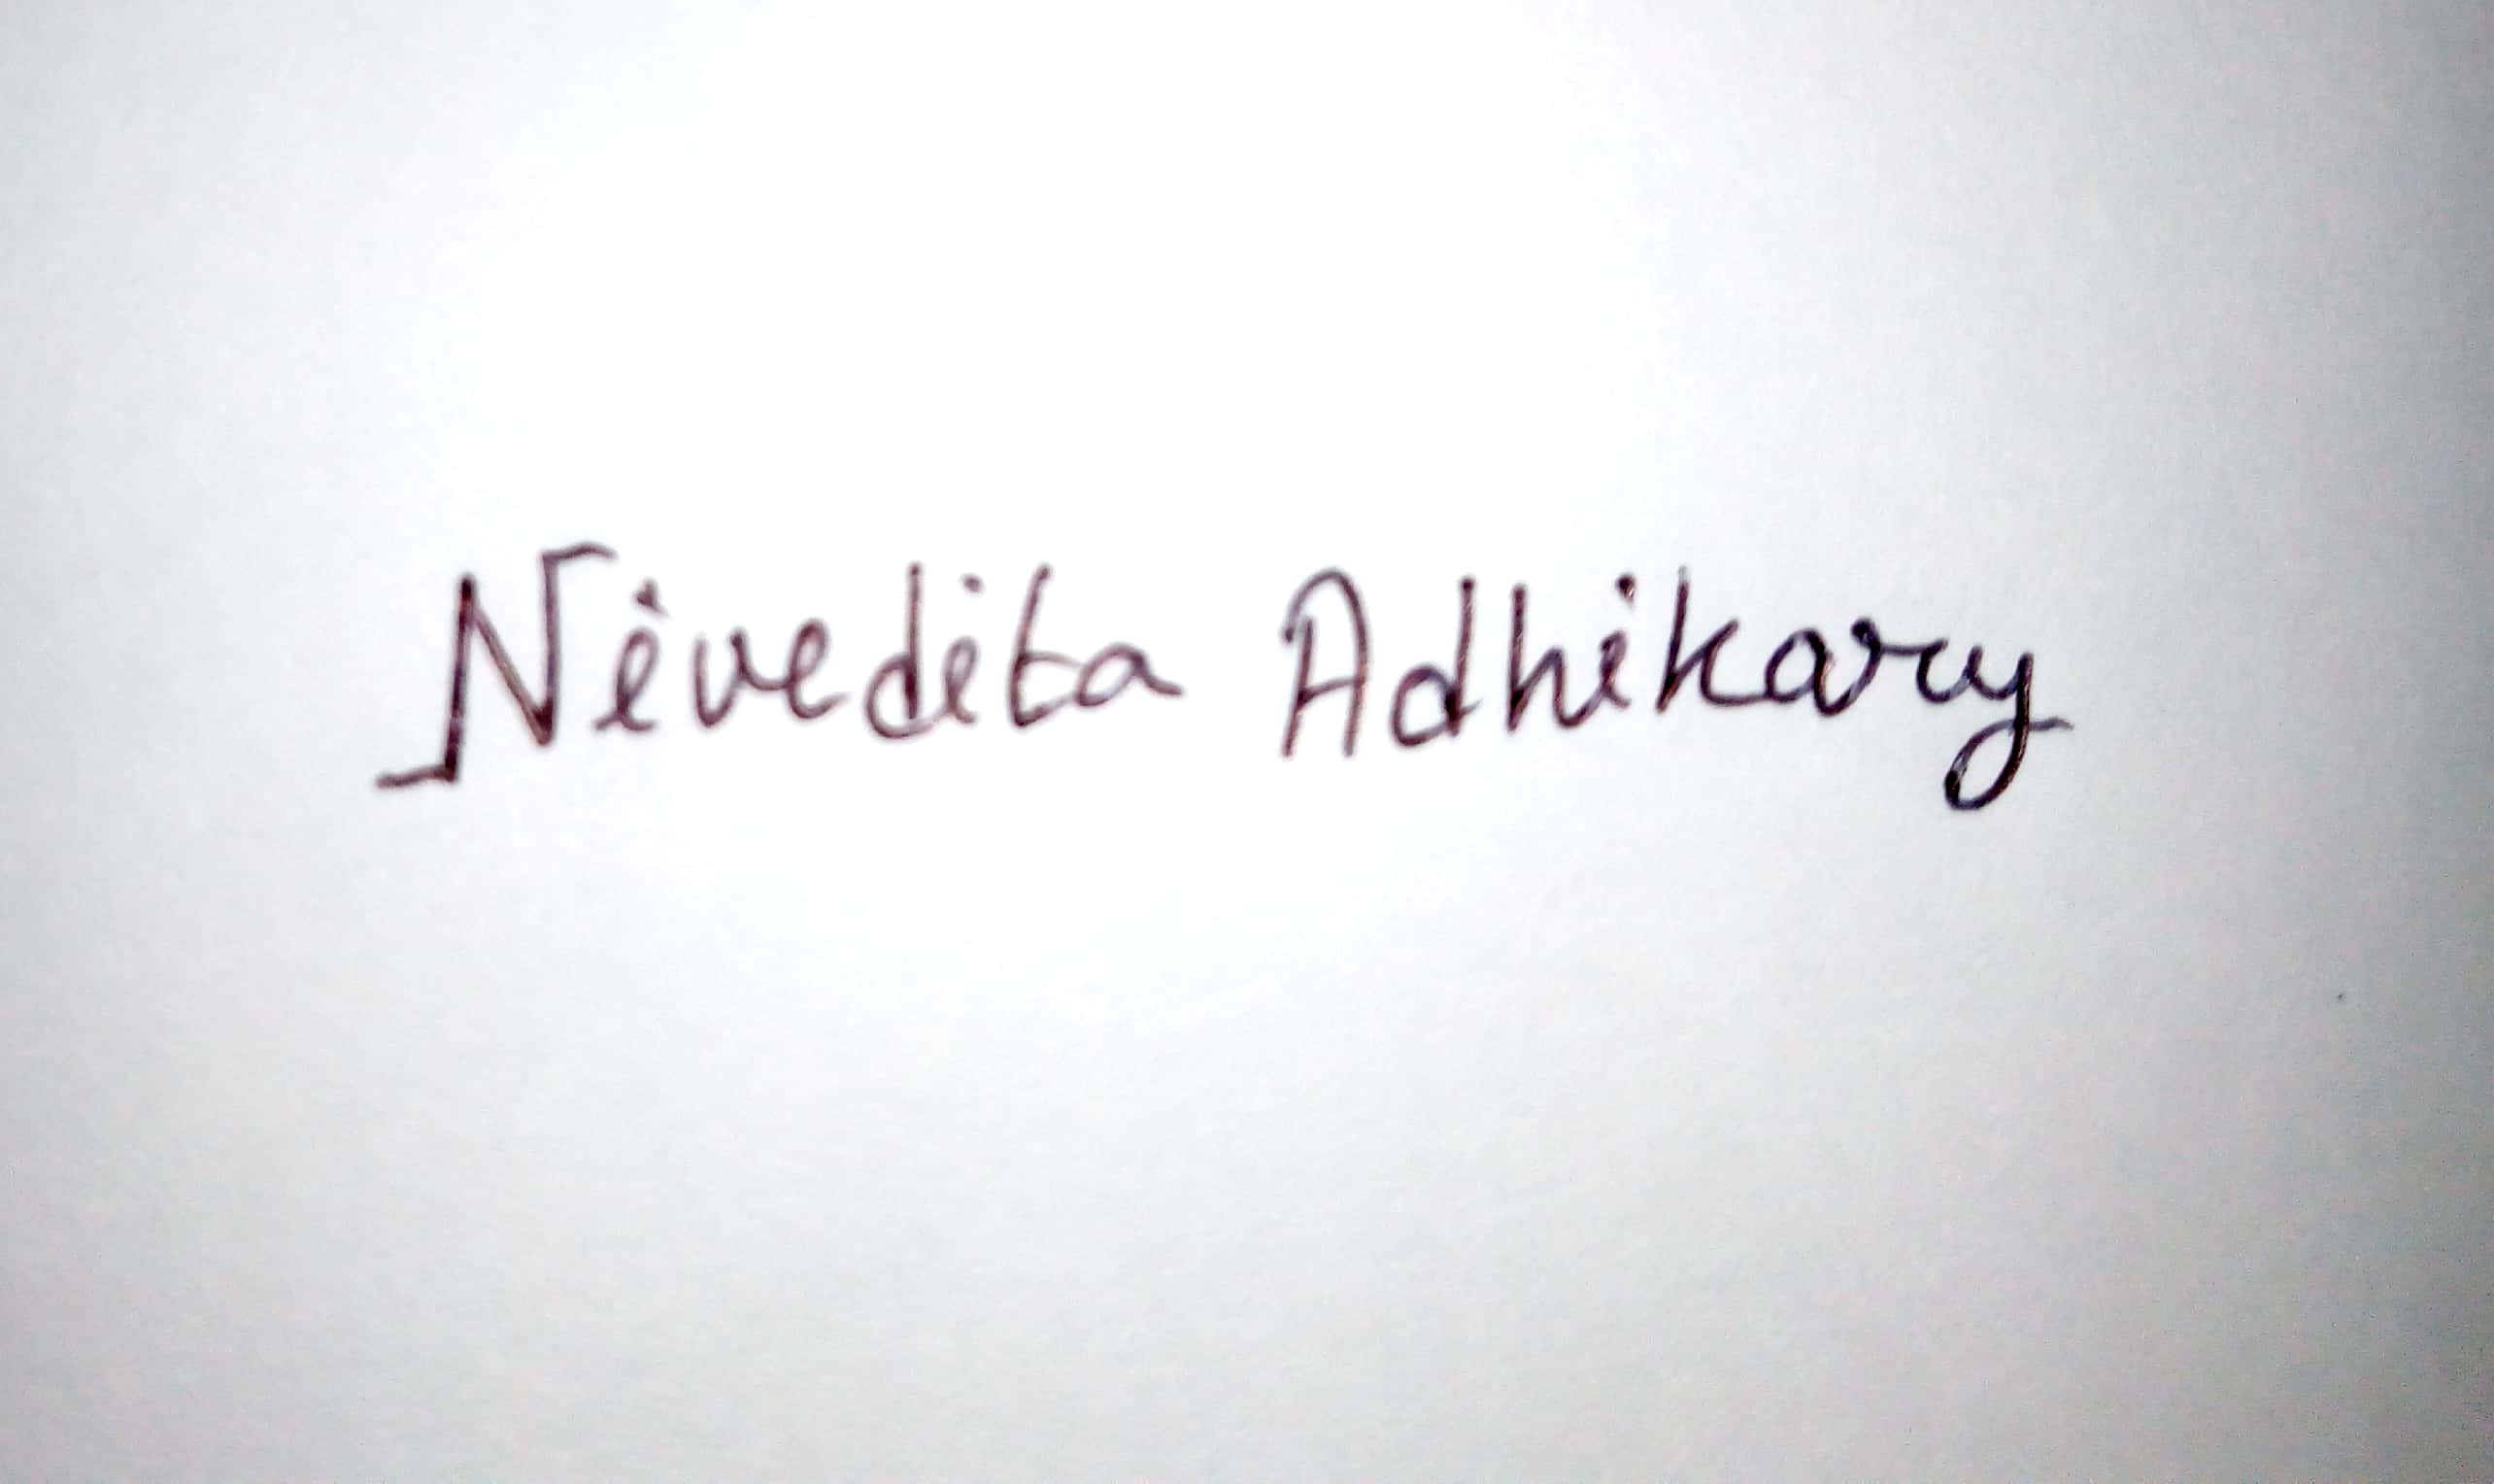 Nivedita Adhikary